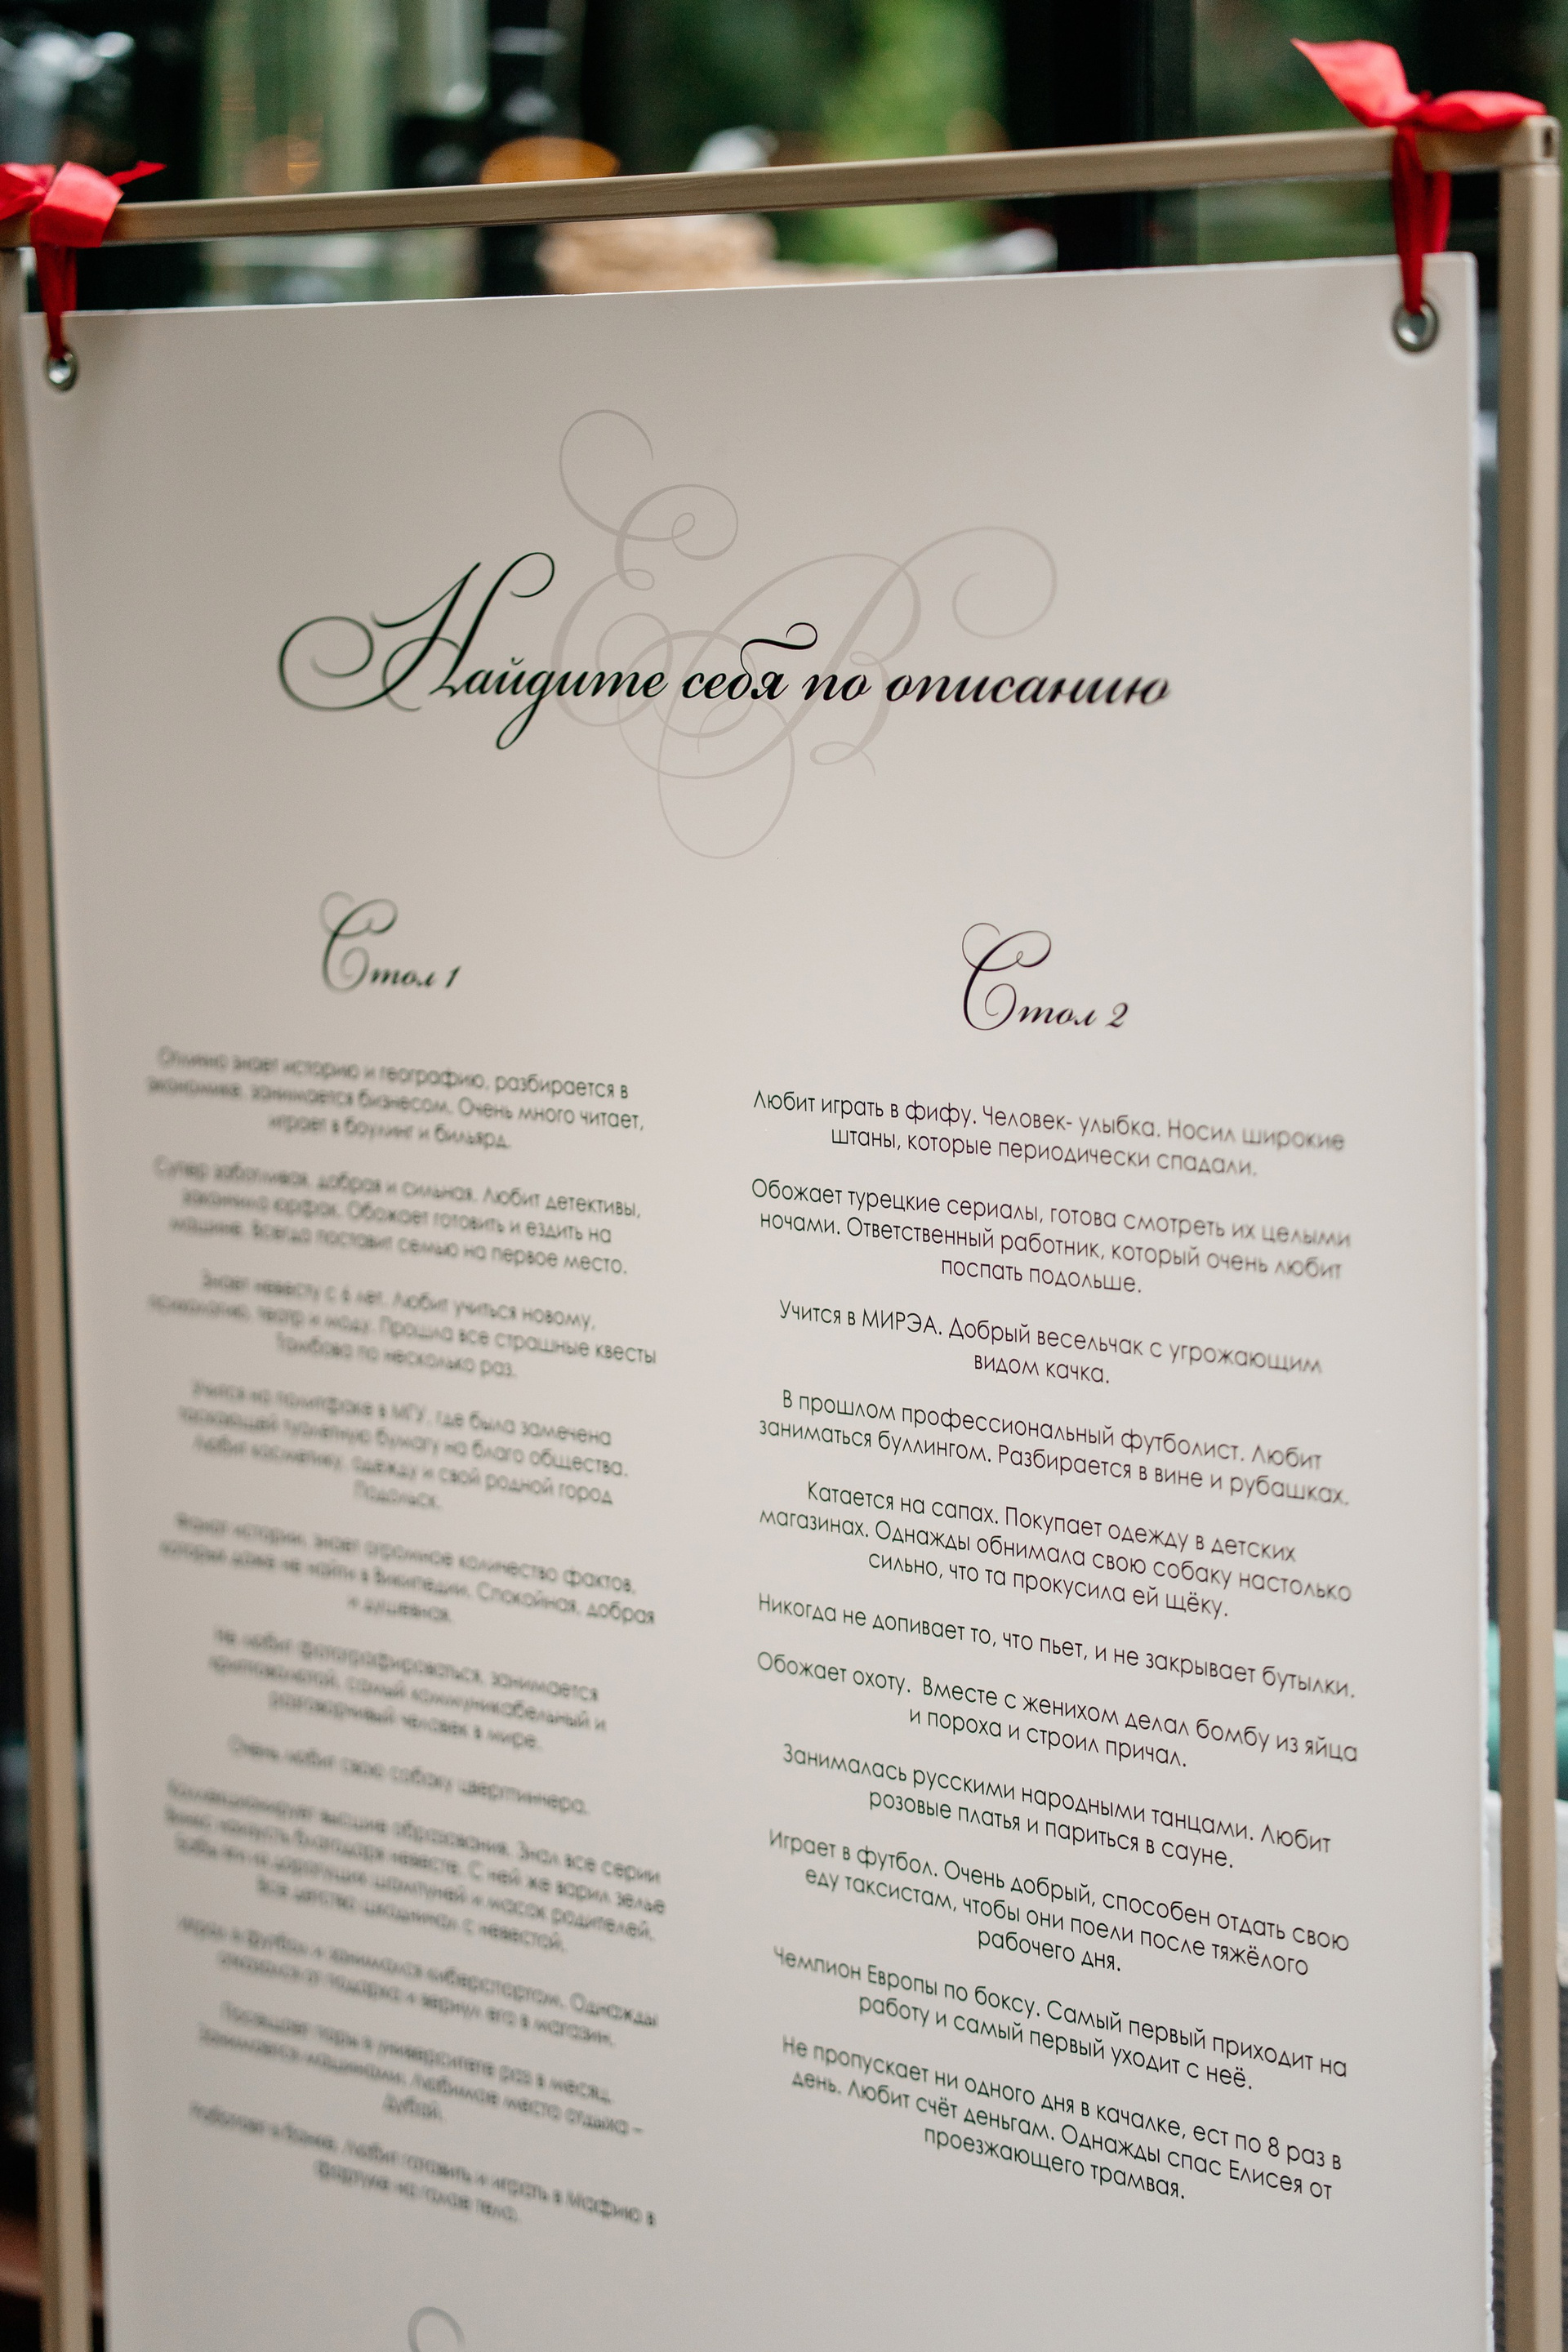 ЕВ
Найдите себя по описанию
Стол 1
Отлично знает историю и географию, разбирается в
экономике, занимается бизнесом. Очень много читает,
играет в боулинг и бильярд.
Супер заботливая, добрая и сильная. Любит детективы,
закончила юрфак. Обожает готовить и ездить на
машине. Всегда поставит семью на первое место.
Знает невесту с 6 лет. Любит учиться новому,
психологию, театр и моду. Прошла все страшные квесты
Тамбова по несколько раз.
Учится на политфаке в МГУ, где была замечена
таскающей туалетную бумагу на благо общества.
Любит косметику, одежду и свой родной город
Подольск.
Фанат истории, знает огромное количество фактов,
которых даже не найти в Википедии. Спокойная, добрая
и душевная.
Не любит фотографироваться, занимается
криптовалютой, самый коммуникабельный и
разговорчивый человек в мире.
Очень любит свою собаку цвергпинчера.
Коллекционирует высшие образования. Знал все серии
Винкс наизусть благодаря невесте. С ней же варил зелье
бабы яги из дорогущих шампуней и масок родителей.
Все детство шкодничал с невестой.
Играл в футбол и занимался киберспортом. Однажды
отказался от подарка и вернул его в магазин.
Посещает пары в университете раз в месяц.
Занимается машинами, любимое место отдыха –
Дубай.
Работает в банке, любит готовить и играть в Мафию в
фартуке на голое тело.
Стол 2
Любит играть в фифу. Человек- улыбка. Носил широкие
штаны, которые периодически спадали.
Обожает турецкие сериалы, готова смотреть их целыми
ночами. Ответственный работник, который очень любит
поспать подольше.
Учится в МИРЭА. Добрый весельчак с угрожающим
видом качка.
В прошлом профессиональный футболист. Любит
заниматься буллингом. Разбирается в вине и рубашках.
Катается на сапах. Покупает одежду в детских
магазинах. Однажды обнимала свою собаку настолько
сильно, что та прокусила ей щёку.
Никогда не допивает то, что пьет, и не закрывает бутылки.
Обожает охоту. Вместе с женихом делал бомбу из яйца
и пороха и строил причал.
Занималась русскими народными танцами. Любит
розовые платья и париться в сауне.
Играет в футбол. Очень добрый, способен отдать свою
еду таксистам, чтобы они поели после тяжёлого
рабочего дня.
Чемпион Европы по боксу. Самый первый приходит на
работу и самый первый уходит с неё.
Не пропускает ни одного дня в качалке, ест по 8 раз в
день. Любит счёт деньгам. Однажды спас Елисея от
проезжающего трамвая.